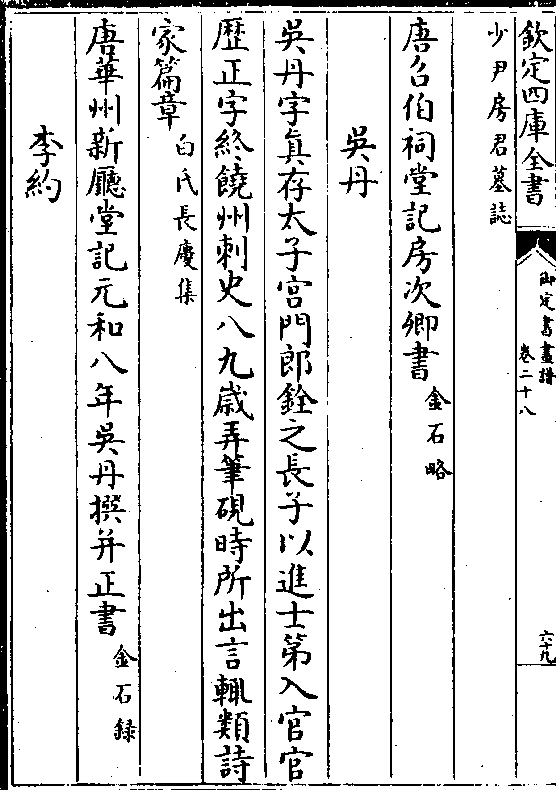 欽定四庫全書
御定書畫譜
卷二十八
六十九
少尹房君墓誌
唐召伯祠堂記房次卿書金石略
吳丹
吳丹字真存太子宮門郎銓之長子以進士第入官官
歷正字終饒州刺史八九歲弄筆硯時所出言輒類詩
家篇章白氏長慶集
唐華州新廳堂記元和八年吳丹撰并正書金石録
李約